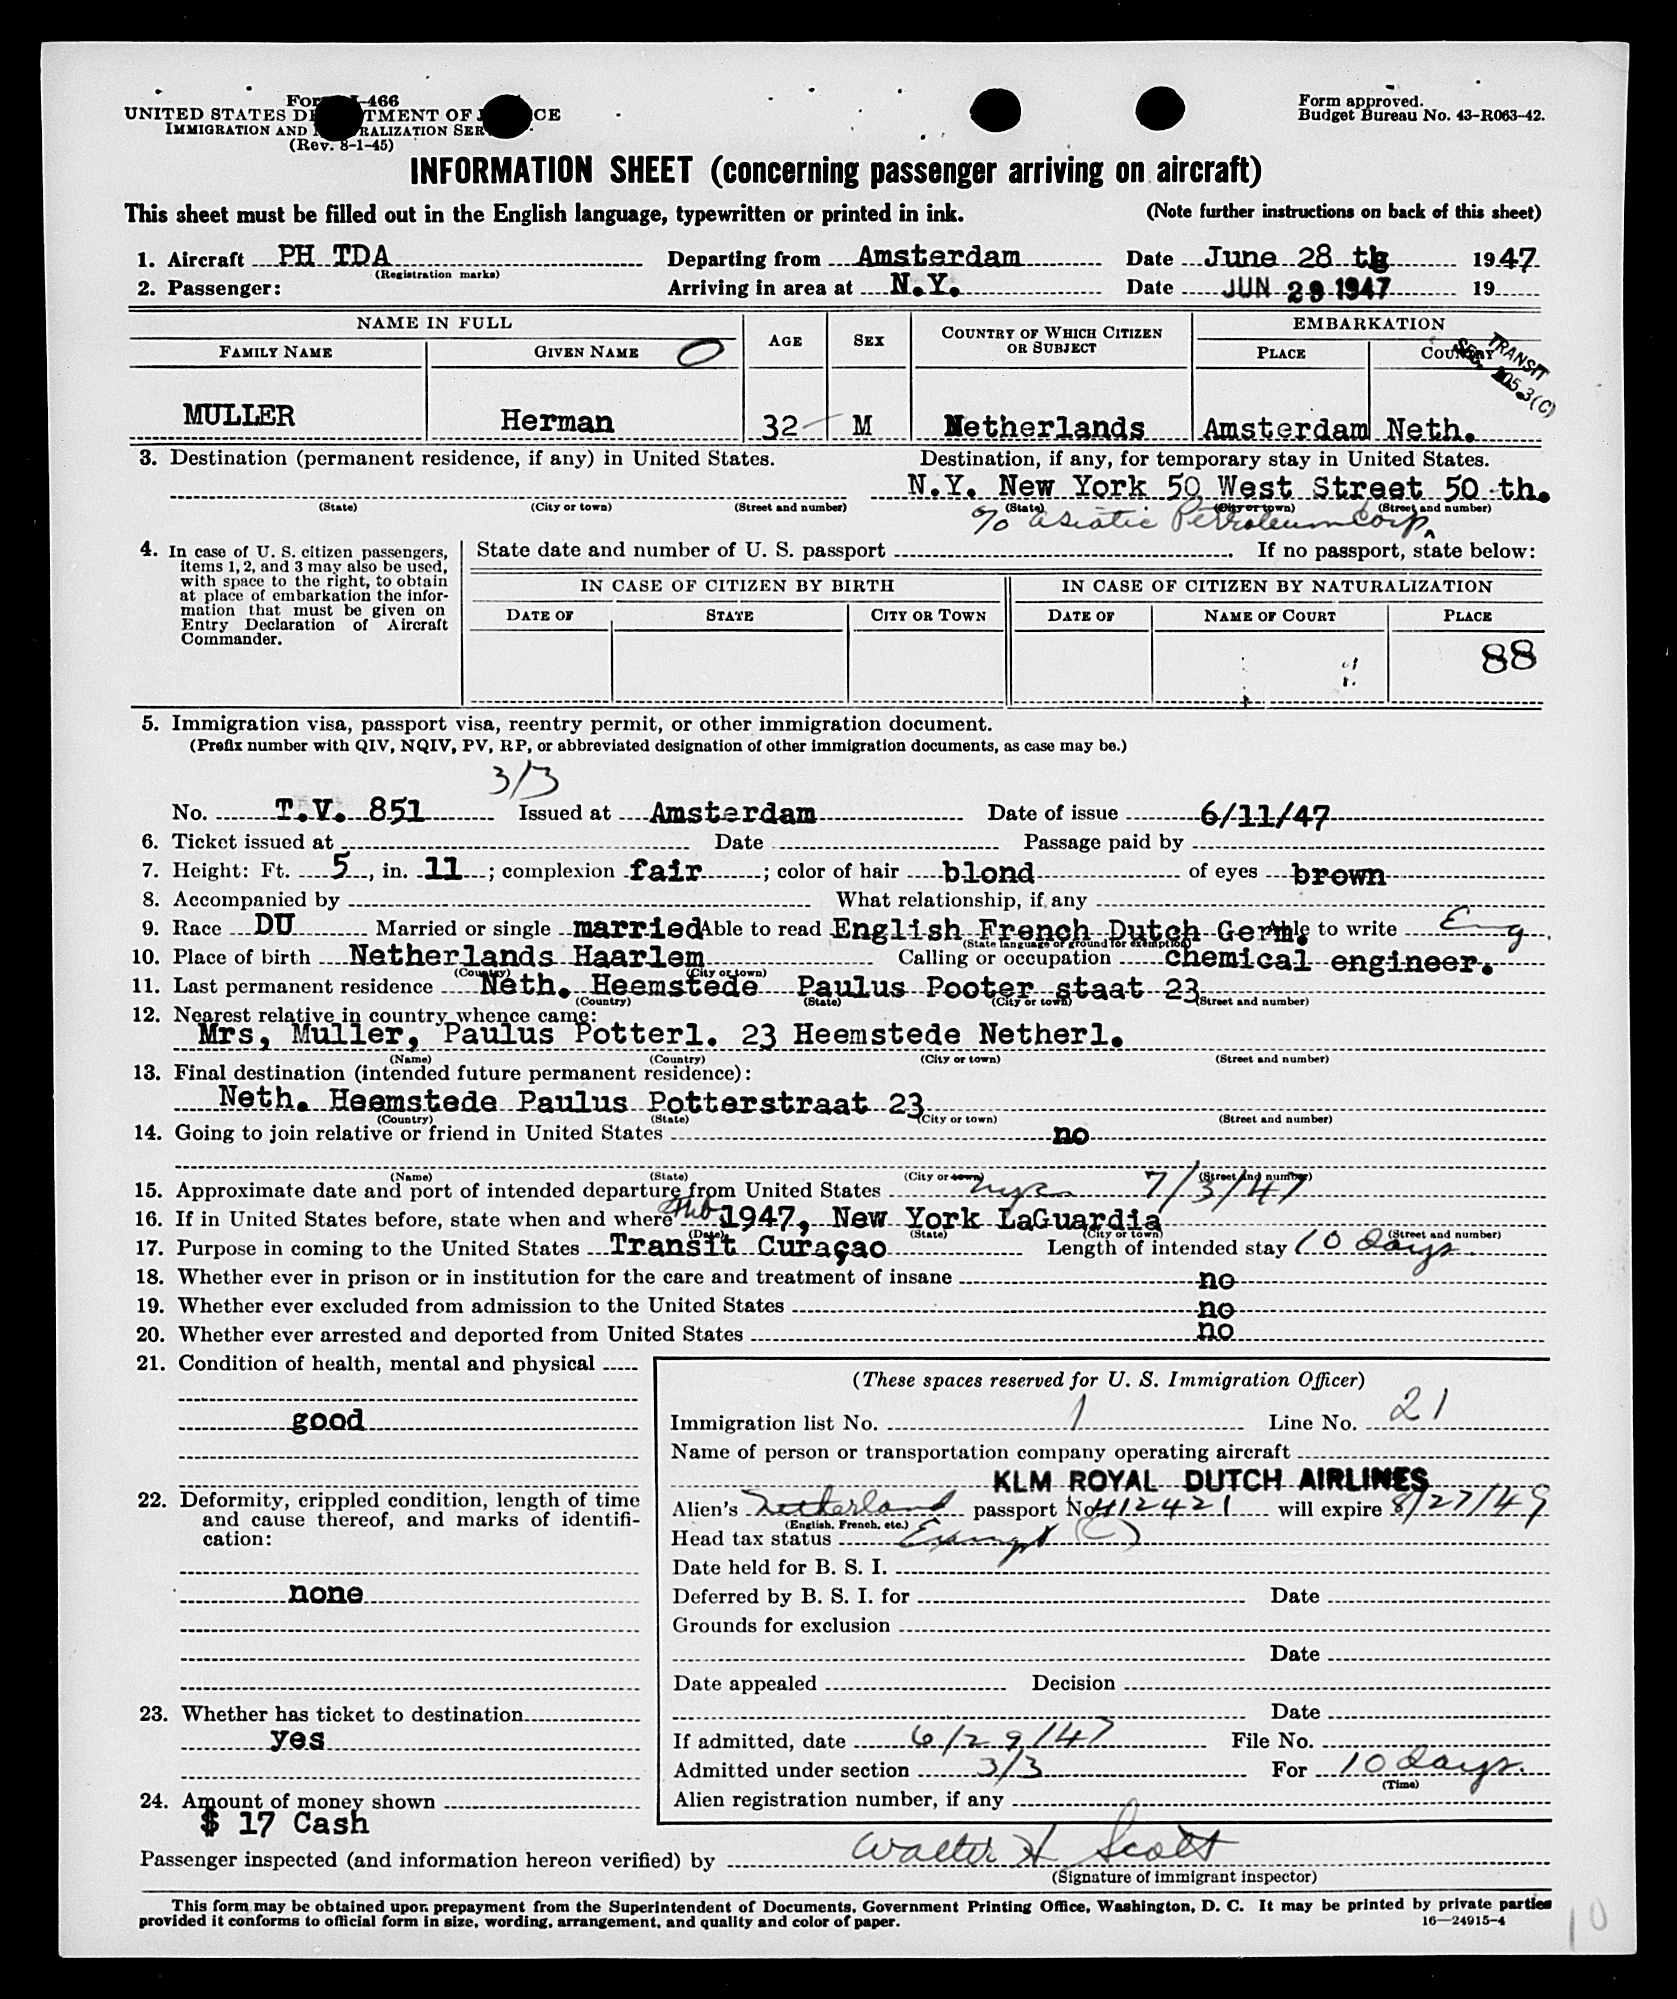 Form I-466
UNITED STATES DEPARTMENT OF JUSTICE
IMMIGRATION AND NATURALIZATION SERVICE
(Rev. 8-1-45)
Form approved.
Budget Bureau No. 43-R063-42.
INFORMATION SHEET (concerning passenger arriving on aircraft)
This sheet must be filled out in the English language, typewritten or printed in ink. (Note further instructions on back of this sheet)
1. Aircraft PH TDA Departing from Amsterdam Date June 28 th 1947
(Registration marks)
2. Passenger: Arriving in area at N.Y. Date JUN 29 1947 19
NAME IN FULL AGE SEX COUNTRY OF WHICH CITIZEN OR SUBJECT EMBARKATION
FAMILY NAME GIVEN NAME O PLACE COUNTRY
TRANSIT
SEC. 105.3(C)
MULLER Herman 32 M Netherlands Amsterdam Neth.
3. Destination (permanent residence, if any) in United States. Destination, if any, for temporary stay in United States.
N.Y. New York 50 West Street 50 th.
(State) (City or town) (Street and number) (State) (City or town) (Street and number)
c/o Asiatic Petroleum Corp
4. In case of U. S. citizen passengers, items 1, 2, and 3 may also be used, with space to the right, to obtain at place of embarkation the information that must be given on Entry Declaration of Aircraft Commander.
State date and number of U. S. passport If no passport, state below:
IN CASE OF CITIZEN BY BIRTH IN CASE OF CITIZEN BY NATURALIZATION
DATE OF STATE CITY OR TOWN DATE OF NAME OF COURT PLACE
88
5. Immigration visa, passport visa, reentry permit, or other immigration document.
(Prefix number with QIV, NQIV, PV, RP, or abbreviated designation of other immigration documents, as case may be.)
3/3
No. T.V. 851 Issued at Amsterdam Date of issue 6/11/47
6. Ticket issued at Date Passage paid by
7. Height: Ft. 5, in. 11; complexion fair; color of hair blond of eyes brown
8. Accompanied by What relationship, if any
9. Race DU Married or single married Able to read English French Dutch Germ. Able to write Eng
(State language or ground for exemption)
10. Place of birth Netherlands Haarlem Calling or occupation chemical engineer.
(Country) (City or town)
11. Last permanent residence Neth. Heemstede Paulus Pooter staat 23
(Country) (State) (City or town) (Street and number)
12. Nearest relative in country whence came:
Mrs, Muller, Paulus Potterl. 23 Heemstede Netherl.
(Name) (Country) (City or town) (Street and number)
13. Final destination (intended future permanent residence):
Neth. Heemstede Paulus Potterstraat 23
(Country) (State) (City or town) (Street and number)
14. Going to join relative or friend in United States no
(Name) (State) (City or town) (Street and number)
15. Approximate date and port of intended departure from United States 7/3/47
16. If in United States before, state when and where Feb 1947, New York LaGuardia
(Date) (State) (City or town) (Street and number)
17. Purpose in coming to the United States Transit Curaçao Length of intended stay 10 days
18. Whether ever in prison or in institution for the care and treatment of insane no
19. Whether ever excluded from admission to the United States no
20. Whether ever arrested and deported from United States no
21. Condition of health, mental and physical
good
22. Deformity, crippled condition, length of time and cause thereof, and marks of identification:
none
23. Whether has ticket to destination
yes
24. Amount of money shown
$ 17 Cash
(These spaces reserved for U. S. Immigration Officer)
Immigration list No. 1 Line No. 21
Name of person or transportation company operating aircraft
KLM ROYAL DUTCH AIRLINES
Alien's Netherland passport No. 412421 will expire 8/27/49
(English, French, etc.)
Head tax status Exempt (C)
Date held for B. S. I.
Deferred by B. S. I. for Date
Grounds for exclusion
Date
Date appealed Decision
Date
If admitted, date 6/29/47 File No.
Admitted under section 3/3 For 10 days.
(Time)
Alien registration number, if any
Passenger inspected (and information hereon verified) by Walter H Scott
(Signature of immigrant inspector)
This form may be obtained upon prepayment from the Superintendent of Documents, Government Printing Office, Washington, D. C. It may be printed by private parties
provided it conforms to official form in size, wording, arrangement, and quality and color of paper. 16—24915-4
10